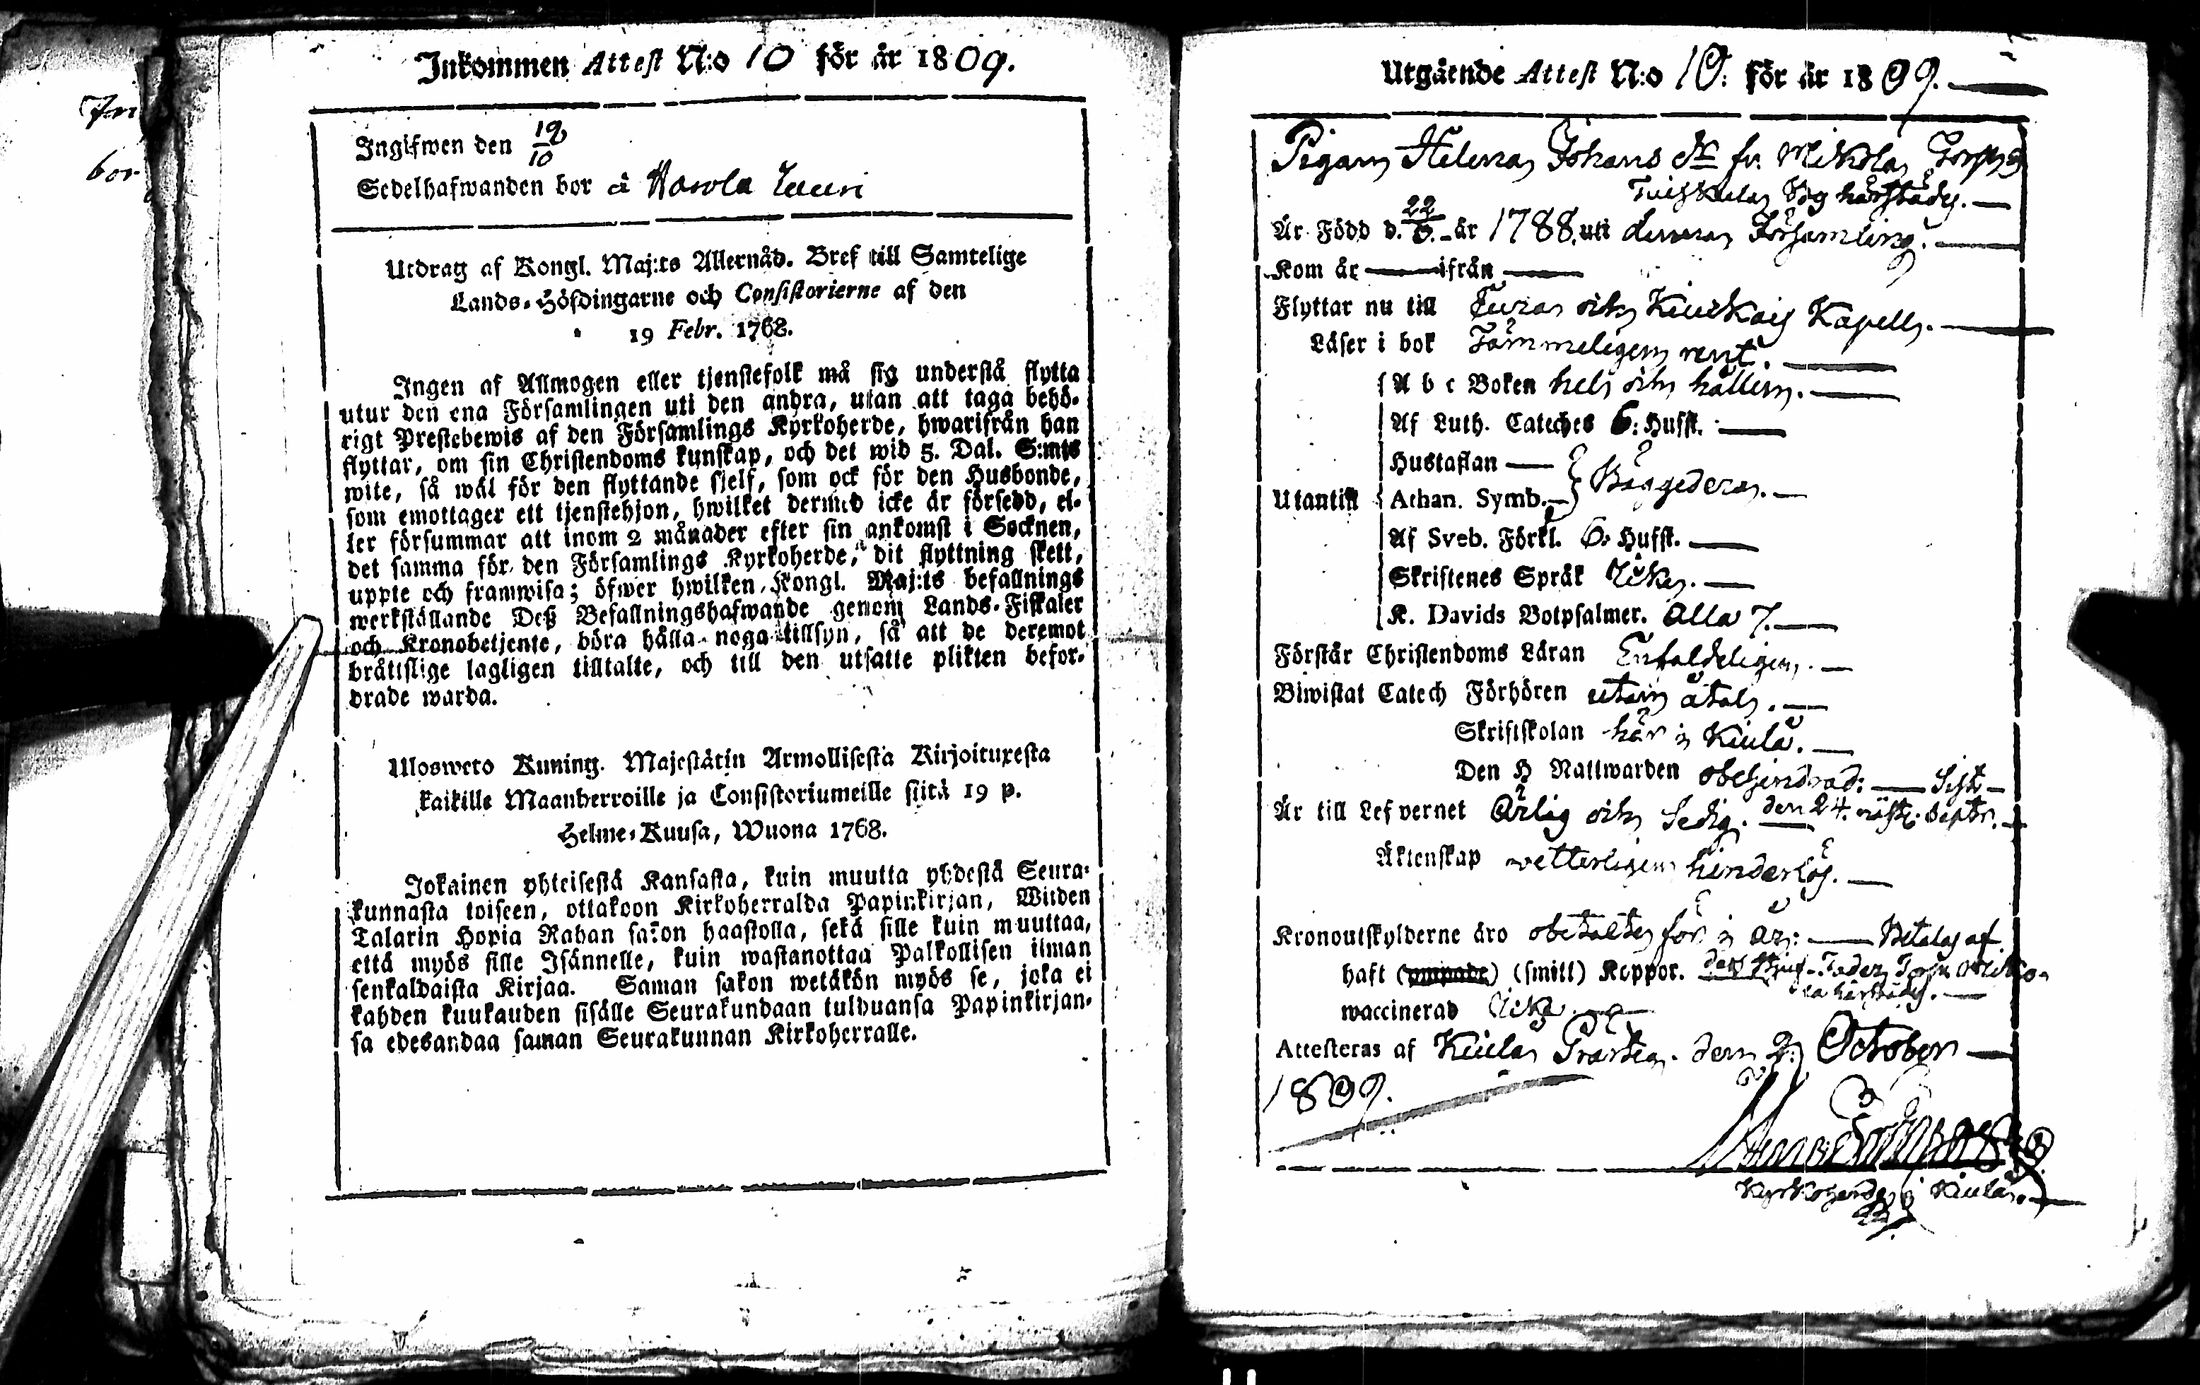 Inkommen Attest N:o 10 för år 1809.
Ingifwen den 19/10
Sedelhafwanden bor å Harola
Utdrag af Kongl. Maj:ts Allernåd. Bref till Samtelige
Lands-Höfdingarne och Consistorierne af den
19 Febr. 1768.
Ingen af Allmogen eller tjenstefolk må sig understå flytta
utur den ena Församlingen uti den andra, utan att taga behö-
rigt Prestebewis af den Församlings Kyrkoherde, hwarifrån han
flyttar, om sin Christendoms kunskap, och det wid 5. Dal. S:mts
wite, så wäl för den flyttande sjelf, som ock för den Husbonde,
som emottager ett tjenstehjon, hwilket dermed icke är försedd, el-
ler försummar att inom 2 månader efter sin ankomst i Socknen,
det samma för den Församlings Kyrkoherde, dit flyttning skett,
uppte och framwisa; öfwer hwilken Kongl. Maj:ts befallnings
werkställande Deß Befallningshafwande genom Lands-Fiskaler
och Kronobetjente, böra hålla noga tillsyn, så att de deremot
bråttslige lagligen tilltalte, och till den utsatte plikten befor-
drade warda.
Uloswero Kuning. Majestätin Armollisesta Kirjoituxesta
kaikille Maanherroille ja Consistoriumeille siitä 19 p.
Helme-Kuusa, Wuona 1768.
Jokainen yhteisestä Kansasta, kuin muutta yhdestä Seura-
kunnasta toiseen, ottakoon Kirkoherralda Papinkirjan, Wiiden
Talarin Hopia Rahan sakon haastolla, sekä sille kuin muuttaa,
että myös sille Isännelle, kuin wastanottaa Palkollisen ilman
senkaldaista Kirjaa. Saman sakon wetäkön myös se, joka ei
kahden kuukauden sisälle Seurakundaan tulduansa Papinkirjan-
sa edesandaa saman Seurakunnan Kirkoherralle.
Utgående Attest N:o 10: för år 1809.
Pigan Helena Johans dr fr. Mikola Torp
By härstädes.
Är Född d. 22/6. år 1788. uti denna Församling.
Kom år — ifrån —
Flyttar nu till Eura och Kiukais Kapell.
Läser i bok Tämmeligen rent.
A b c Boken hel och hållin.
Af Luth. Cateches 6: Hufst.
Hustaflan —
Utantill
Athan. Symb. — Bäggedera.
Af Sveb. Förkl. 6: Hufst.
Skriftenes Språk Icke.
K. Davids Botpsalmer. Alla 7.
Förstår Christendoms Läran Enfaldeligen.
Biwistat Catech Förhören utan åtal.
Skriftskolan här i Kiula.
Den H Nattwarden obehindrad: — Sist
Är till Lefvernet Ärlig och Sedig. — den 24. näst. Septr.
Äktenskap wetterligen hinderlös.
Kronoutskylderne äro obetalte för i år: — Betalas af
haft (smitt) Koppor.
waccinerad Icke.
Attesteras af Kiula Prästeg. den 2 October
1809.
Kyrkoherde i Kiula.